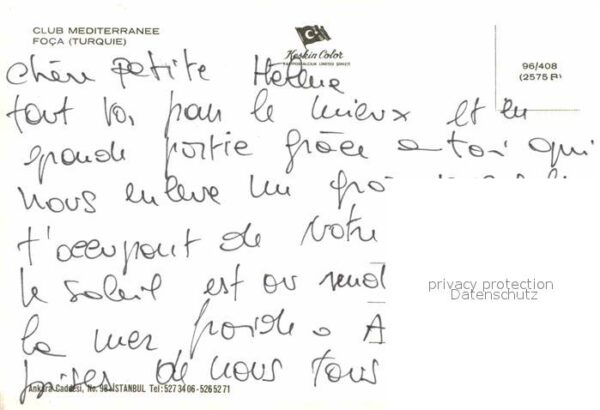 CLUB MEDITERRANEE
FOÇA (TURQUIE)
Keskin Color
96/408
(2575 R)
chère petite Hélène
tout va, pour le mieux et en
grande partie grâce a toi qui
nous enlève un gros
t'occupant de notre
le soleil est au rend
la mer froide. A
bises de nous tous
Ankara Caddesi, No: 98 İSTANBUL Tel: 527 34 06 - 526 52 71
privacy protection
Datenschutz